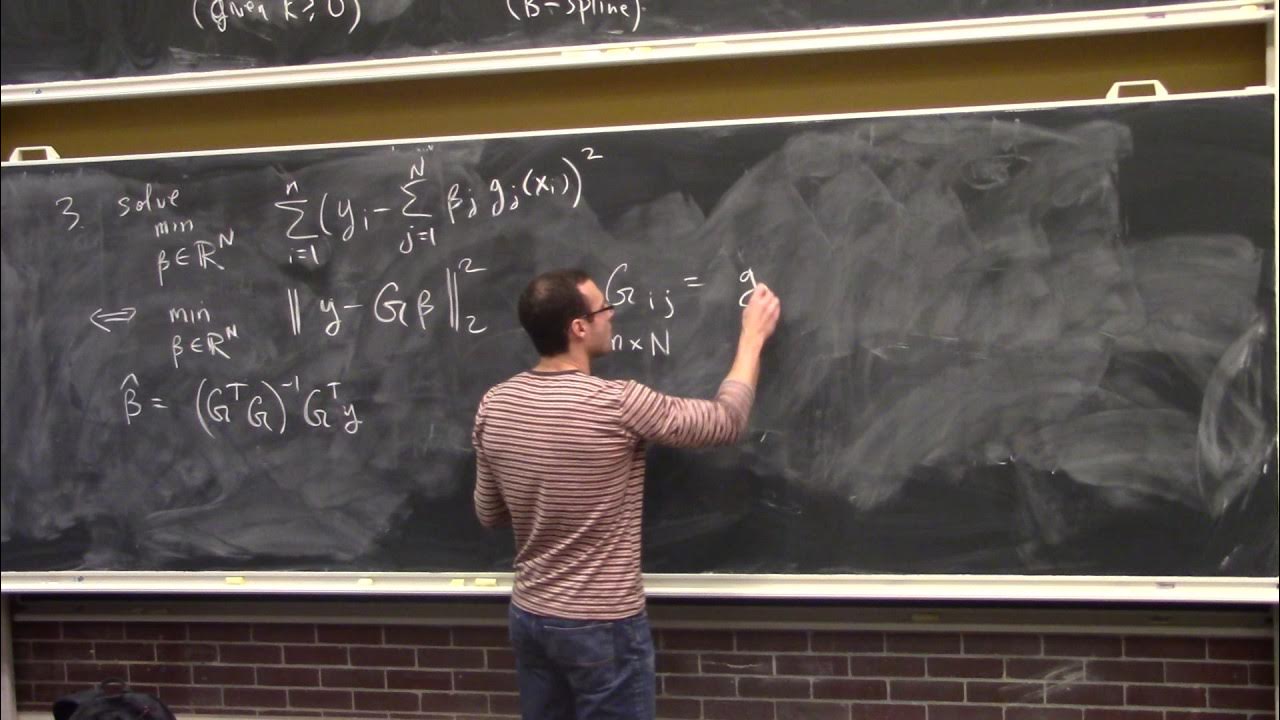 (given k ≥ 0) (B-spline).
3. solve min β∈ℝ^N ∑_{i=1}^{n} (y_i − ∑_{j=1}^{N} β_j g_j(x_i))^2
⟺ min β∈ℝ^N ‖ y − G β ‖_2^2 G_{ij} = g
n × N
β̂ = (G^T G)^{-1} G^T y